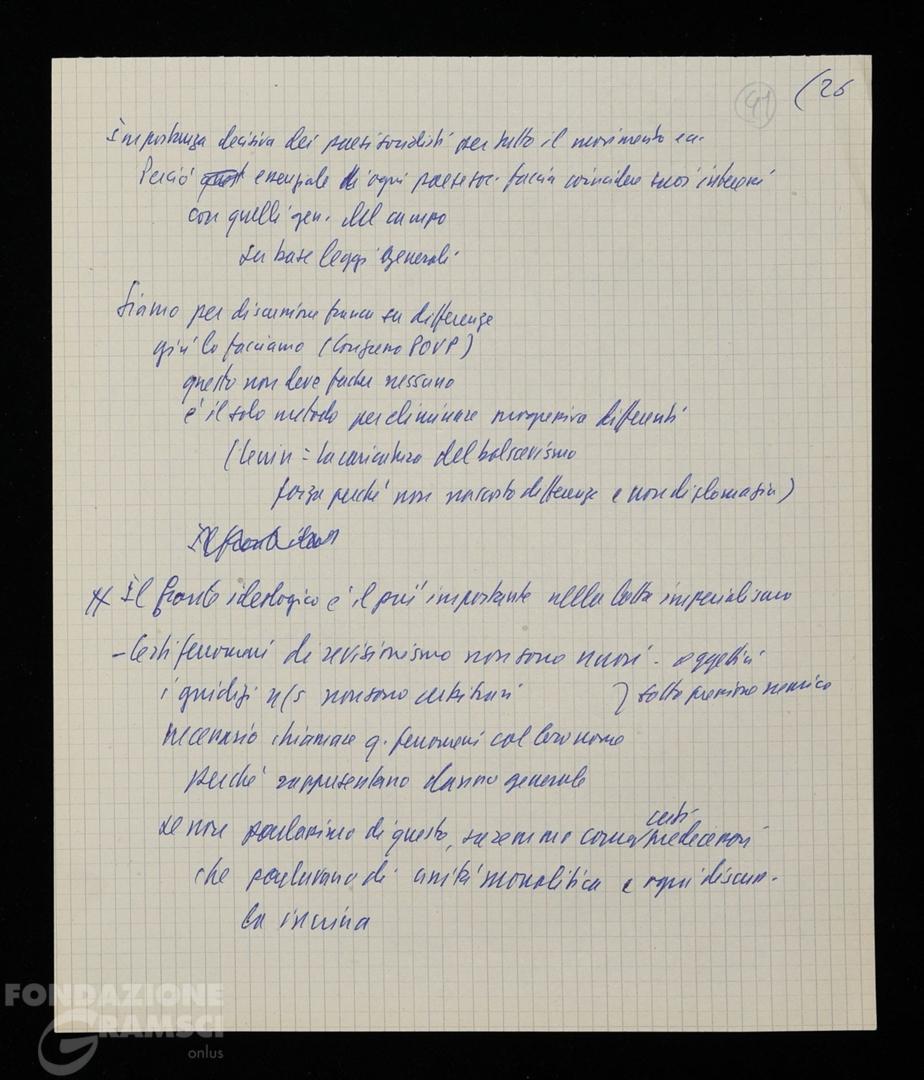 91 (26
Importanza decisiva dei paesi socialisti per tutto il movimento
Perciò essenziale ogni paese soc. faccia coincidere suoi interessi
con quelli gen. del campo
su base leggi generali
Siamo per discussione franca su differenze
già lo facciamo (Congresso POUP)
questo non deve nessuno
è il solo metodo per eliminare differenti
(Lenin = la caricatura del bolscevismo
forza perché non nascosto differenze e non diplomazia)
Il fronte ideologico è il più importante nella lotta imperialismo
- Certi fenomeni di revisionismo non sono nuovi - oggettivi
i giudizi n/s non sono arbitrari } sotto pressione nemico
necessario chiamare q. fenomeni col loro nome
perché rappresentano danno generale
se non parlassimo di questo, saremmo come certi predecessori
che parlavano di unità monolitica e ogni discuss.
la incrina
FONDAZIONE
GRAMSCI
onlus